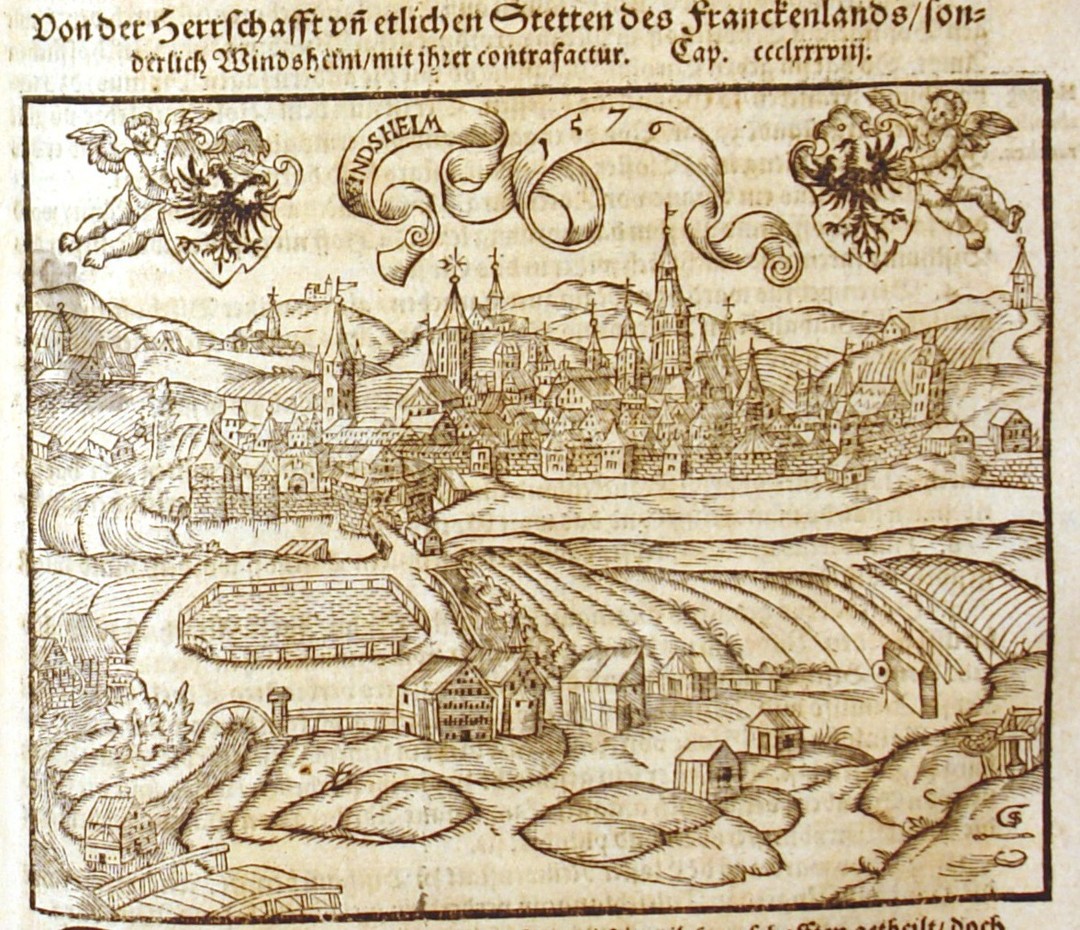 Von der Herrschafft vñ etlichen Stetten des Franckenlands/ son⸗
derlich Windsheim/mit jhrer contrafactur. Cap. ccclxxxviij.
WINDSHEIM
1576
getheilt/ doch